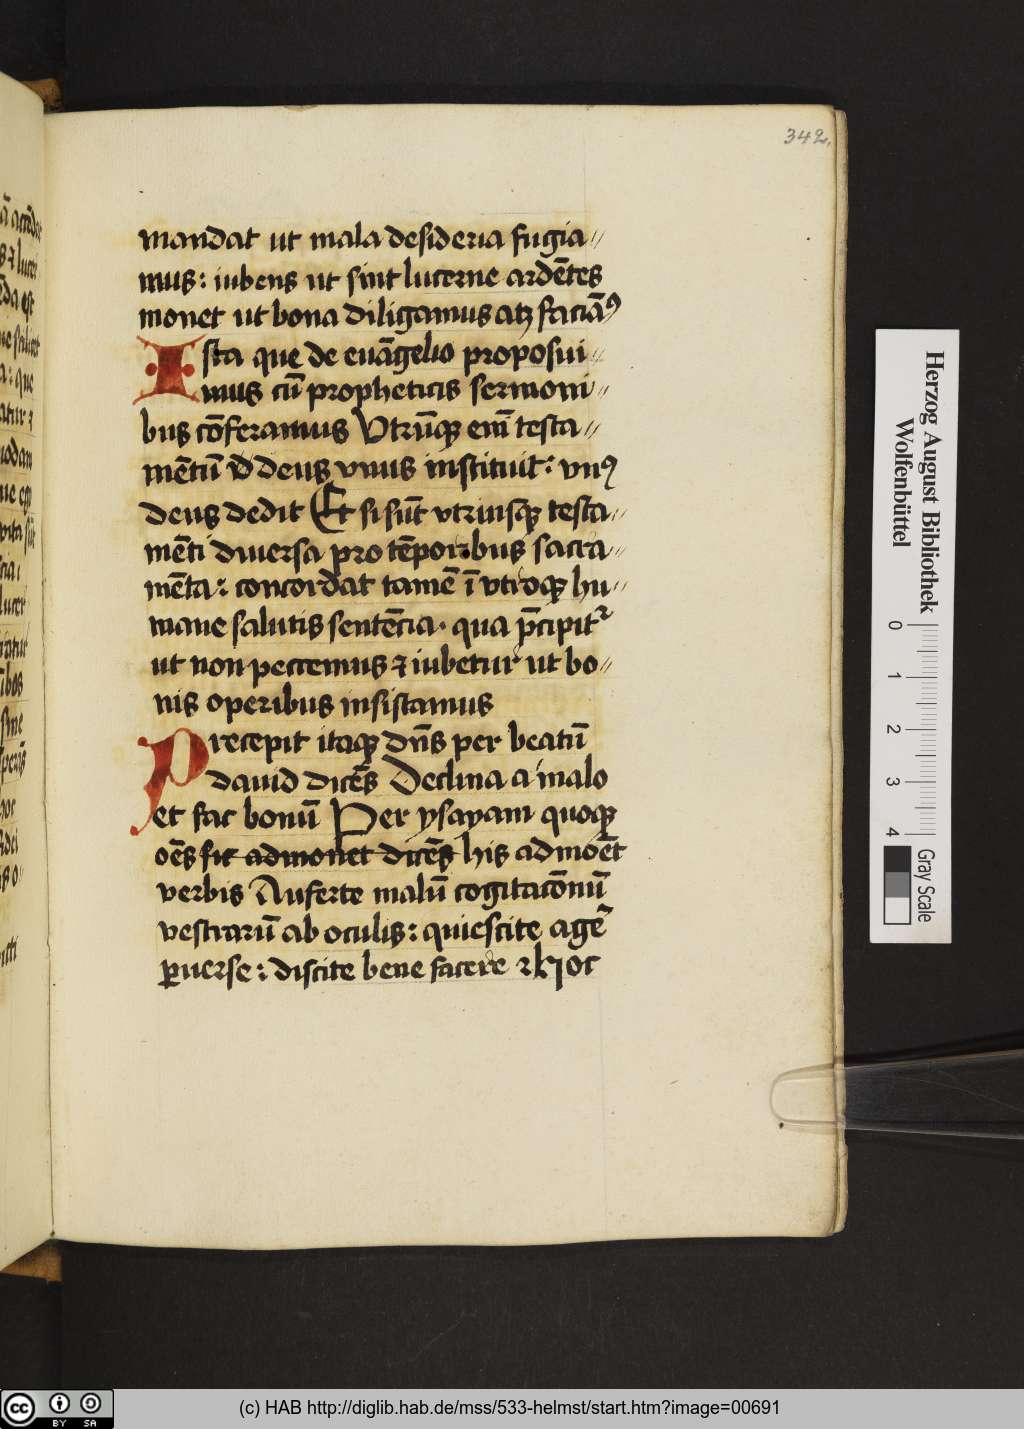 342.
mandat ut mala desideria fugia〃
mus: iubens ut sint lucerne ardētes
monet ut bona diligamus atꝫ faciāꝰ
Ista que de euāgelio proposui〃
mus cū propheticis sermoni〃
bus cōferamus Vtrūqꝫ em̄ testa〃
mētū deus vnus instituit: vnꝰ
deus dedit Et si sūt vtriusqꝫ testa〃
mēti diuersa pro tēporibus sacra〃
mēta: concordat tamē ī vtroqꝫ hu〃
mane salutis sentēcia. qua p̄cipit᷑
ut non peccemus ⁊ iubetur ut bo〃
nis operibus insistamus
Precepit itaqꝫ dn̄s per beatū
dauid dicēs Declina a malo
et fac bonū Per ysayam quoqꝫ
oēs sic admonet dicēs his admoēt
verbis Auferte malū cogitacōnū
vestrarū ab oculis: quiescite agē
ꝑuerse: discite bene facere ⁊ hoc
Herzog August Bibliothek
Wolfenbüttel
0 1 2 3 4
Gray Scale
cc BY SA
(c) HAB http://diglib.hab.de/mss/533-helmst/start.htm?image=00691